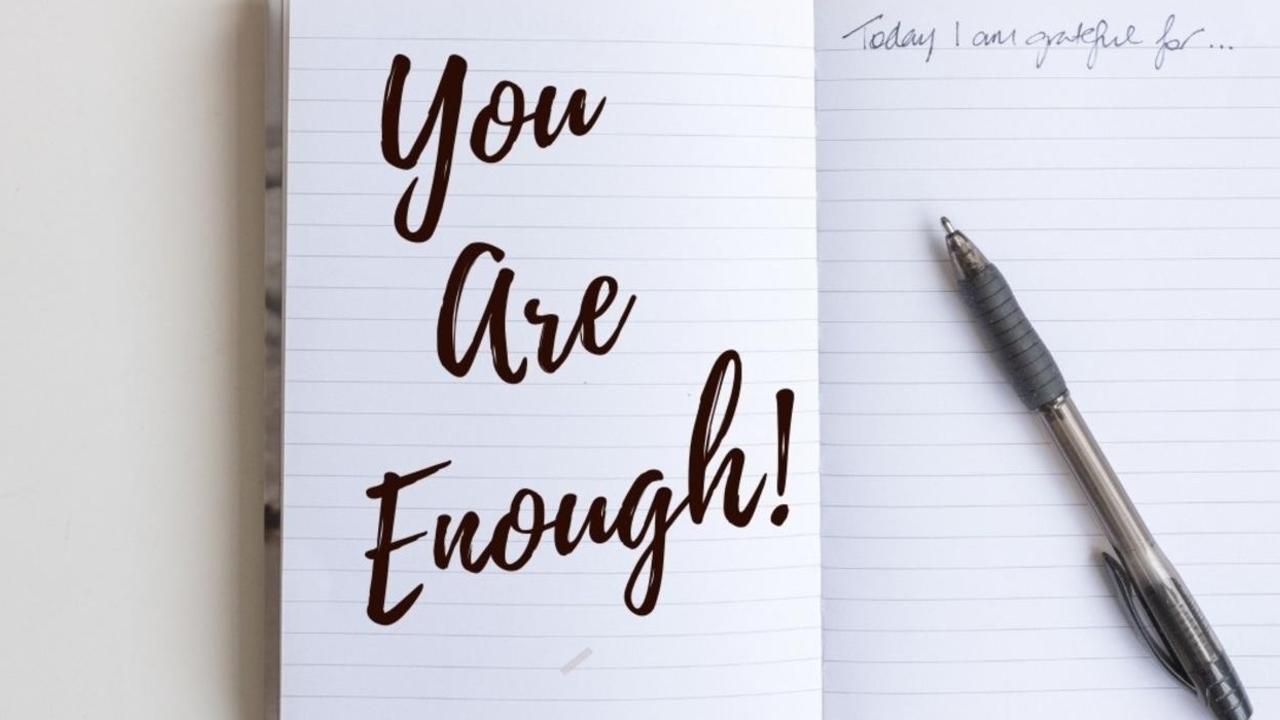 You
Are
Enough!
Today I am grateful for...